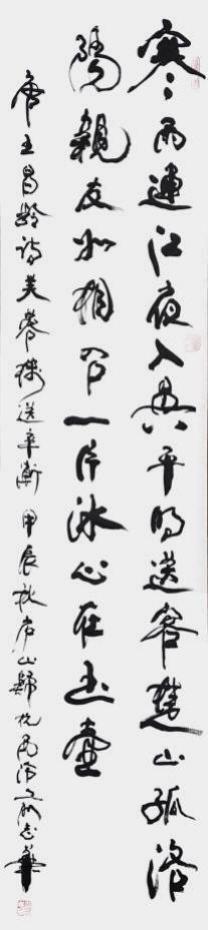 寒雨連江夜入吳平明送客楚山孤洛
陽親友如相問一片冰心在玉壺
唐王昌齡詩芙蓉樓送辛漸 甲辰秋 山歸